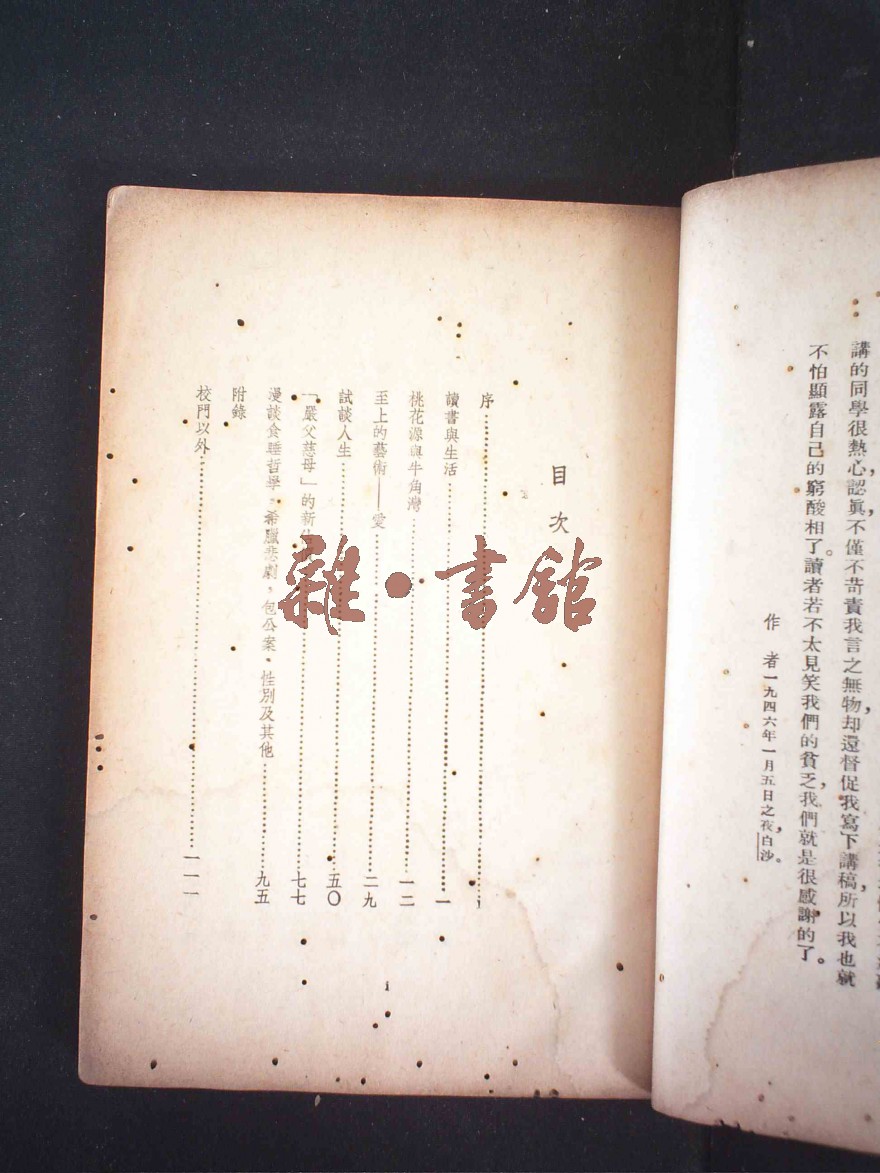 講的同學很熱心，認眞，不僅不苛責我言之無物，却還督促我寫下講稿，所以我也就
不怕顯露自己的窮酸相了。讀者若不太見笑我們的貧乏，我們就是很感謝的了。
作者一九四六年一月五日之夜，白沙。
目次
序 i
讀書與生活 一
桃花源與牛角灣 一二
至上的藝術——愛 二九
試談人生 五〇
「嚴父慈母」的新 七七
漫談食睡哲學，希臘悲劇，包公案，性別及其他 九五
附錄
校門以外 一一一
i
雜·書館